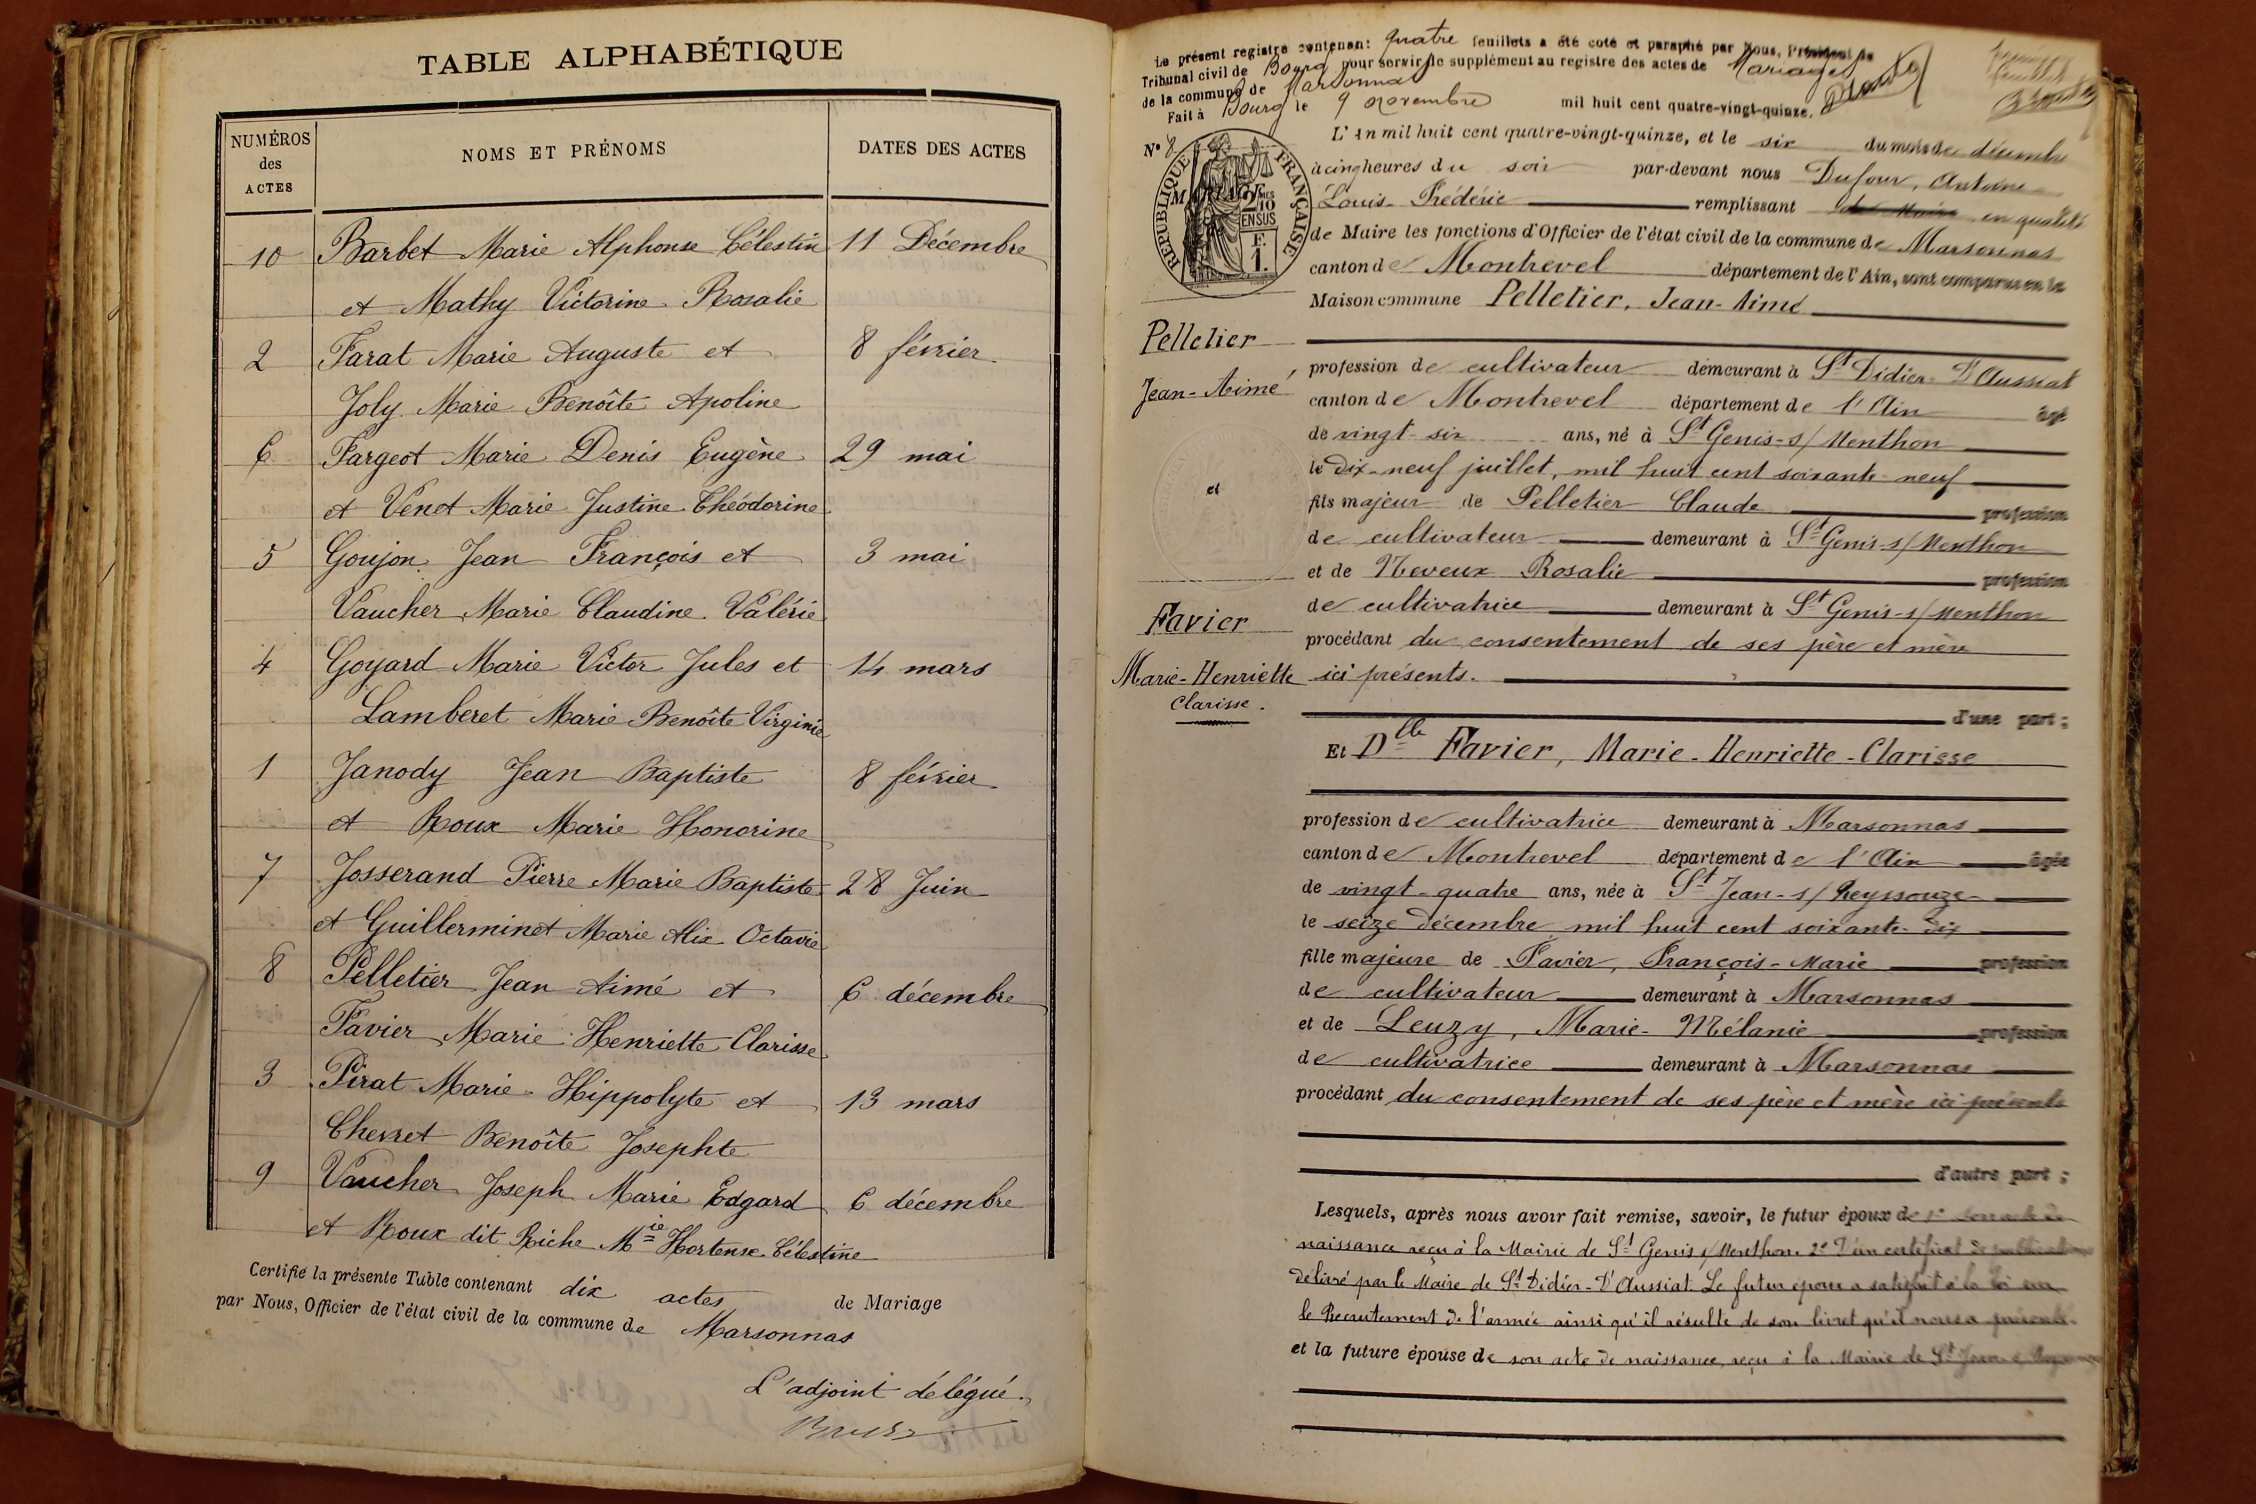 TABLE ALPHABÉTIQUE
NUMÉROS des ACTES
NOMS ET PRÉNOMS
DATES DES ACTES
10 Barbet Marie Alphonse Célestin 11 Décembre
et Mathy Victorine Rosalie
2 Farat Marie Auguste et 8 février
Joly Marie Benoîte Apoline
6 Fargeot Marie Denis Eugène 29 mai
et Venet Marie Justine Théodorine
5 Goujon Jean François et 3 mai
Vaucher Marie Claudine Valérie
4 Goyard Marie Victor Jules et 14 mars
Lamberet Marie Benoîte Virginie
1 Janody Jean Baptiste 8 février
et Roux Marie Honorine
7 Josserand Pierre Marie Baptiste 28 Juin
et Guillerminet Marie Alix Octavie
8 Pelletier Jean Aimé et 6 décembre
Favier Marie Henriette Clarisse
3 Pirat Marie Hippolyte et 13 mars
Chevret Benoîte Josephte
9 Vaucher Joseph Marie Edgard 6 décembre
et Roux dit Riche Mie Hortense Célestine
Certifié la présente Table contenant dix actes de Mariage
par Nous, Officier de l'état civil de la commune de Marsonnas
L'adjoint délégué.
Le présent registre contenant quatre feuillets a été coté et paraphé par Nous, Président du
Tribunal civil de Bourg pour servir de supplément au registre des actes de Mariages
de la commune de Marsonnas
Fait à Bourg le 9 novembre mil huit cent quatre-vingt-quinze.
N° 8
RÉPUBLIQUE FRANÇAISE
2/10 EN SUS
F. 1.
L'An mil huit cent quatre-vingt-quinze, et le six du mois de décembre
à cinq heures du soir par-devant nous Dufour, Antoine
Louis-Frédéric remplissant en qualité
de Maire les fonctions d'Officier de l'état civil de la commune de Marsonnas
canton de Montrevel département de l'Ain, sont comparus en la
Maison commune Pelletier, Jean-Aimé
Pelletier
Jean-Aimé
et
Favier
Marie-Henriette
Clarisse.
profession de cultivateur demeurant à St Didier-d'Aussiat
canton de Montrevel département de l'Ain âgé
de vingt-six ans, né à St Genis-s/Menthon
le dix-neuf juillet, mil huit cent soixante-neuf
fils majeur de Pelletier Claude profession
de cultivateur demeurant à St Genis-s/Menthon
et de Neveux Rosalie profession
de cultivatrice demeurant à St Genis-s/Menthon
procédant du consentement de ses père et mère
ici présents.
d'une part ;
Et Dlle Favier, Marie-Henriette-Clarisse
profession de cultivatrice demeurant à Marsonnas
canton de Montrevel département de l'Ain âgée
de vingt-quatre ans, née à St Jean-s/Reyssouze
le seize décembre mil huit cent soixante-dix
fille majeure de Favier, François-Marie profession
de cultivateur demeurant à Marsonnas
et de Leuzy, Marie-Mélanie profession
de cultivatrice demeurant à Marsonnas
procédant du consentement de ses père et mère ici présents
d'autre part ;
Lesquels, après nous avoir fait remise, savoir, le futur époux de 1° son acte de
naissance reçu à la Mairie de St Genis s/Menthon. 2° D'un certificat de publications
délivré par le Maire de St Didier-d'Aussiat. Le futur époux a satisfait à la loi sur
le Recrutement de l'armée ainsi qu'il résulte de son livret qu'il nous a présenté.
et la future épouse de son acte de naissance, reçu à la Mairie de St Jean-s/Reyssouze